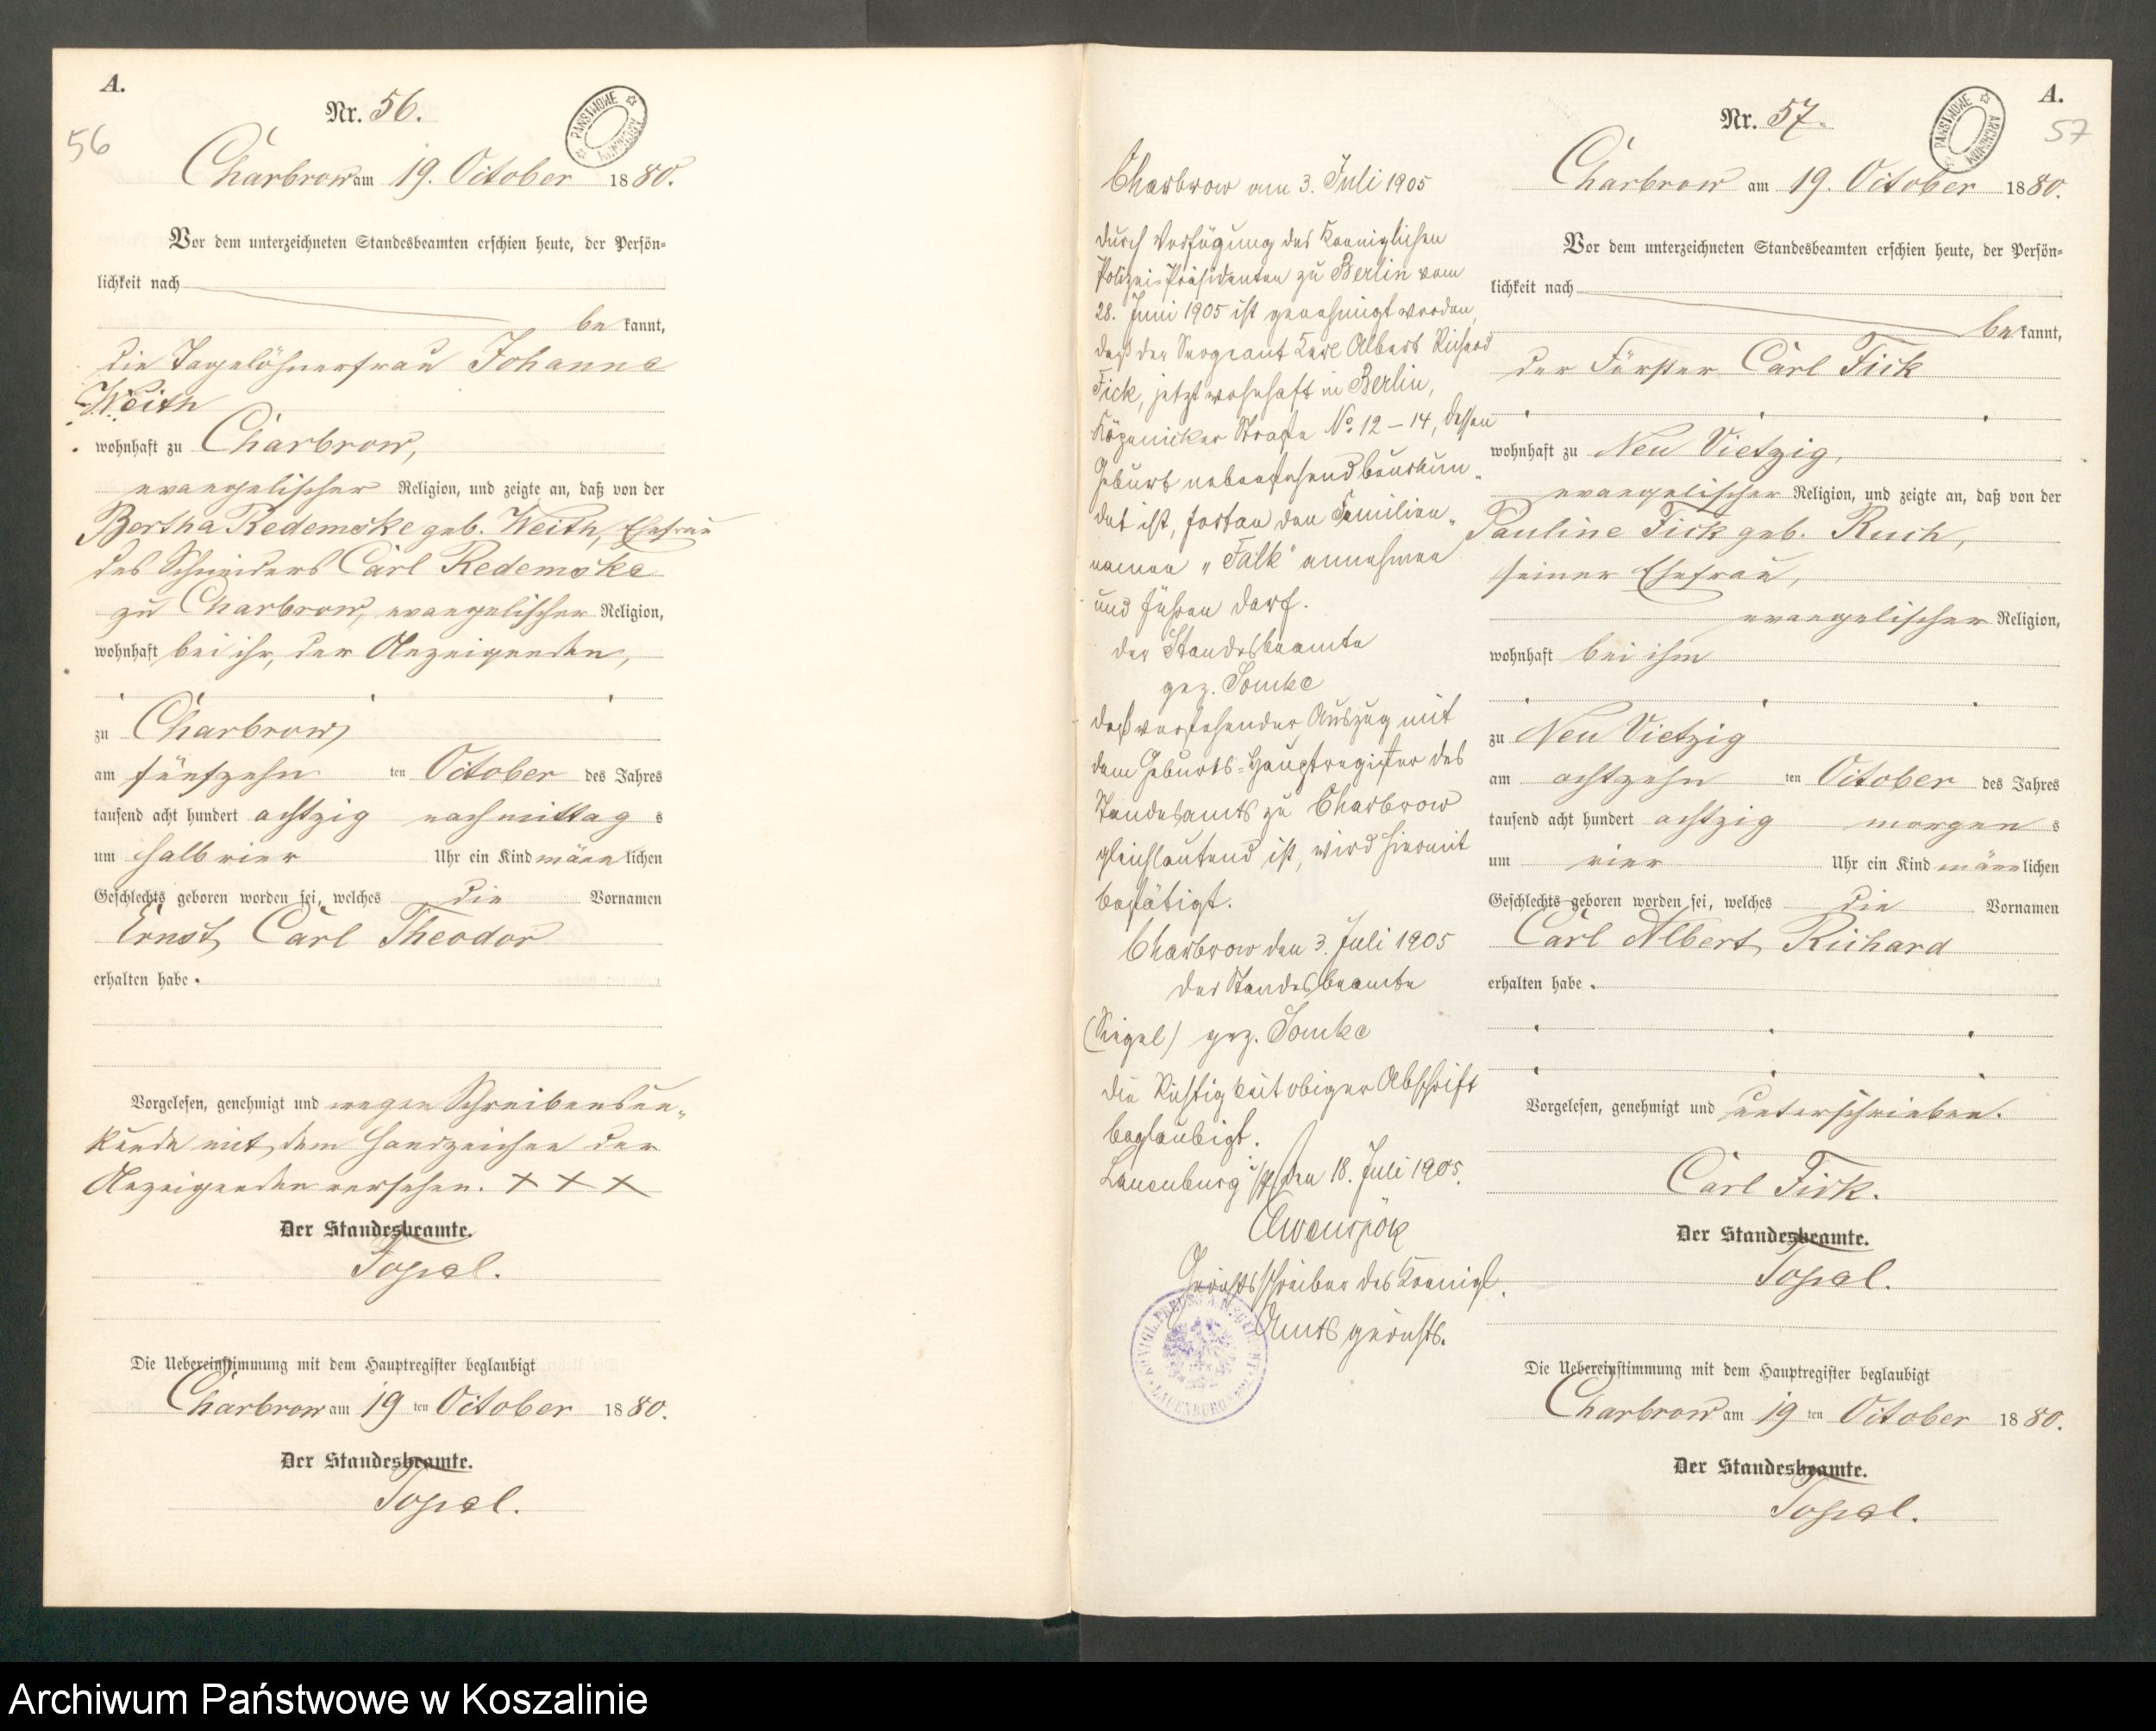 A.
Nr. 56.
56
PAŃSTWOWE ARCHIWUM
Charbrow am 19. October 1880.
Vor dem unterzeichneten Standesbeamten erschien heute, der Persön-
lichkeit nach
bekannt,
die Tagelöhnerfrau Johanne
Weith
wohnhaft zu Charbrow,
evangelischer Religion, und zeigte an, daß von der
Bertha Redemske geb. Weith, Ehefrau
des Schneiders Carl Redemske
zu Charbrow, evangelischer Religion,
wohnhaft bei ihr, der Anzeigenden,
zu Charbrow,
am fünfzehnten October des Jahres
tausend acht hundert achtzig nachmittags
um halb vier Uhr ein Kind männlichen
Geschlechts geboren worden sei, welches die Vornamen
Ernst Carl Theodor
erhalten habe.
Vorgelesen, genehmigt und wegen Schreibensun-
kunde mit dem Handzeichen der
Anzeigenden versehen. + + +
Der Standesbeamte.
Topal.
Die Uebereinstimmung mit dem Hauptregister beglaubigt
Charbrow am 19ten October 1880.
Der Standesbeamte.
Topal.
Charbrow am 3. Juli 1905
Durch Verfügung des Koeniglichen
Polizei-Präsidenten zu Berlin vom
28. Juni 1905 ist genehmigt worden,
daß der Sergeant Karl Albert Richard
Fick, jetzt wohnhaft in Berlin,
Köpenicker Straße No. 12-14, dessen
Geburt nebenstehend beurkun-
det ist, fortan den Familien-
namen "Falk" annehmen
und führen darf.
der Standesbeamte
gez. Somke
Daß vorstehender Auszug mit
dem Geburts-Hauptregister des
Standesamts zu Charbrow
gleichlautend ist, wird hiermit
bestätigt.
Charbrow den 3. Juli 1905
der Standesbeamte
(Siegel) gez. Somke
Die Richtigkeit obiger Abschrift
beglaubigt.
Lauenburg i/P den 18. Juli 1905.
Gerichtsschreiber des Koenigl.
Amtsgerichts.
A.
Nr. 57.
57
PAŃSTWOWE ARCHIWUM
Charbrow am 19. October 1880.
Vor dem unterzeichneten Standesbeamten erschien heute, der Persön-
lichkeit nach
bekannt,
der Förster Carl Fick
wohnhaft zu Neu Vietzig,
evangelischer Religion, und zeigte an, daß von der
Pauline Fick geb. Ruch,
seiner Ehefrau,
evangelischer Religion,
wohnhaft bei ihm
zu Neu Vietzig
am achtzehnten October des Jahres
tausend acht hundert achtzig morgens
um vier Uhr ein Kind männlichen
Geschlechts geboren worden sei, welches die Vornamen
Carl Albert Richard
erhalten habe.
Vorgelesen, genehmigt und unterschrieben.
Carl Fick.
Der Standesbeamte.
Topal.
Die Uebereinstimmung mit dem Hauptregister beglaubigt
Charbrow am 19ten October 1880.
Der Standesbeamte.
Topal.
Archiwum Państwowe w Koszalinie